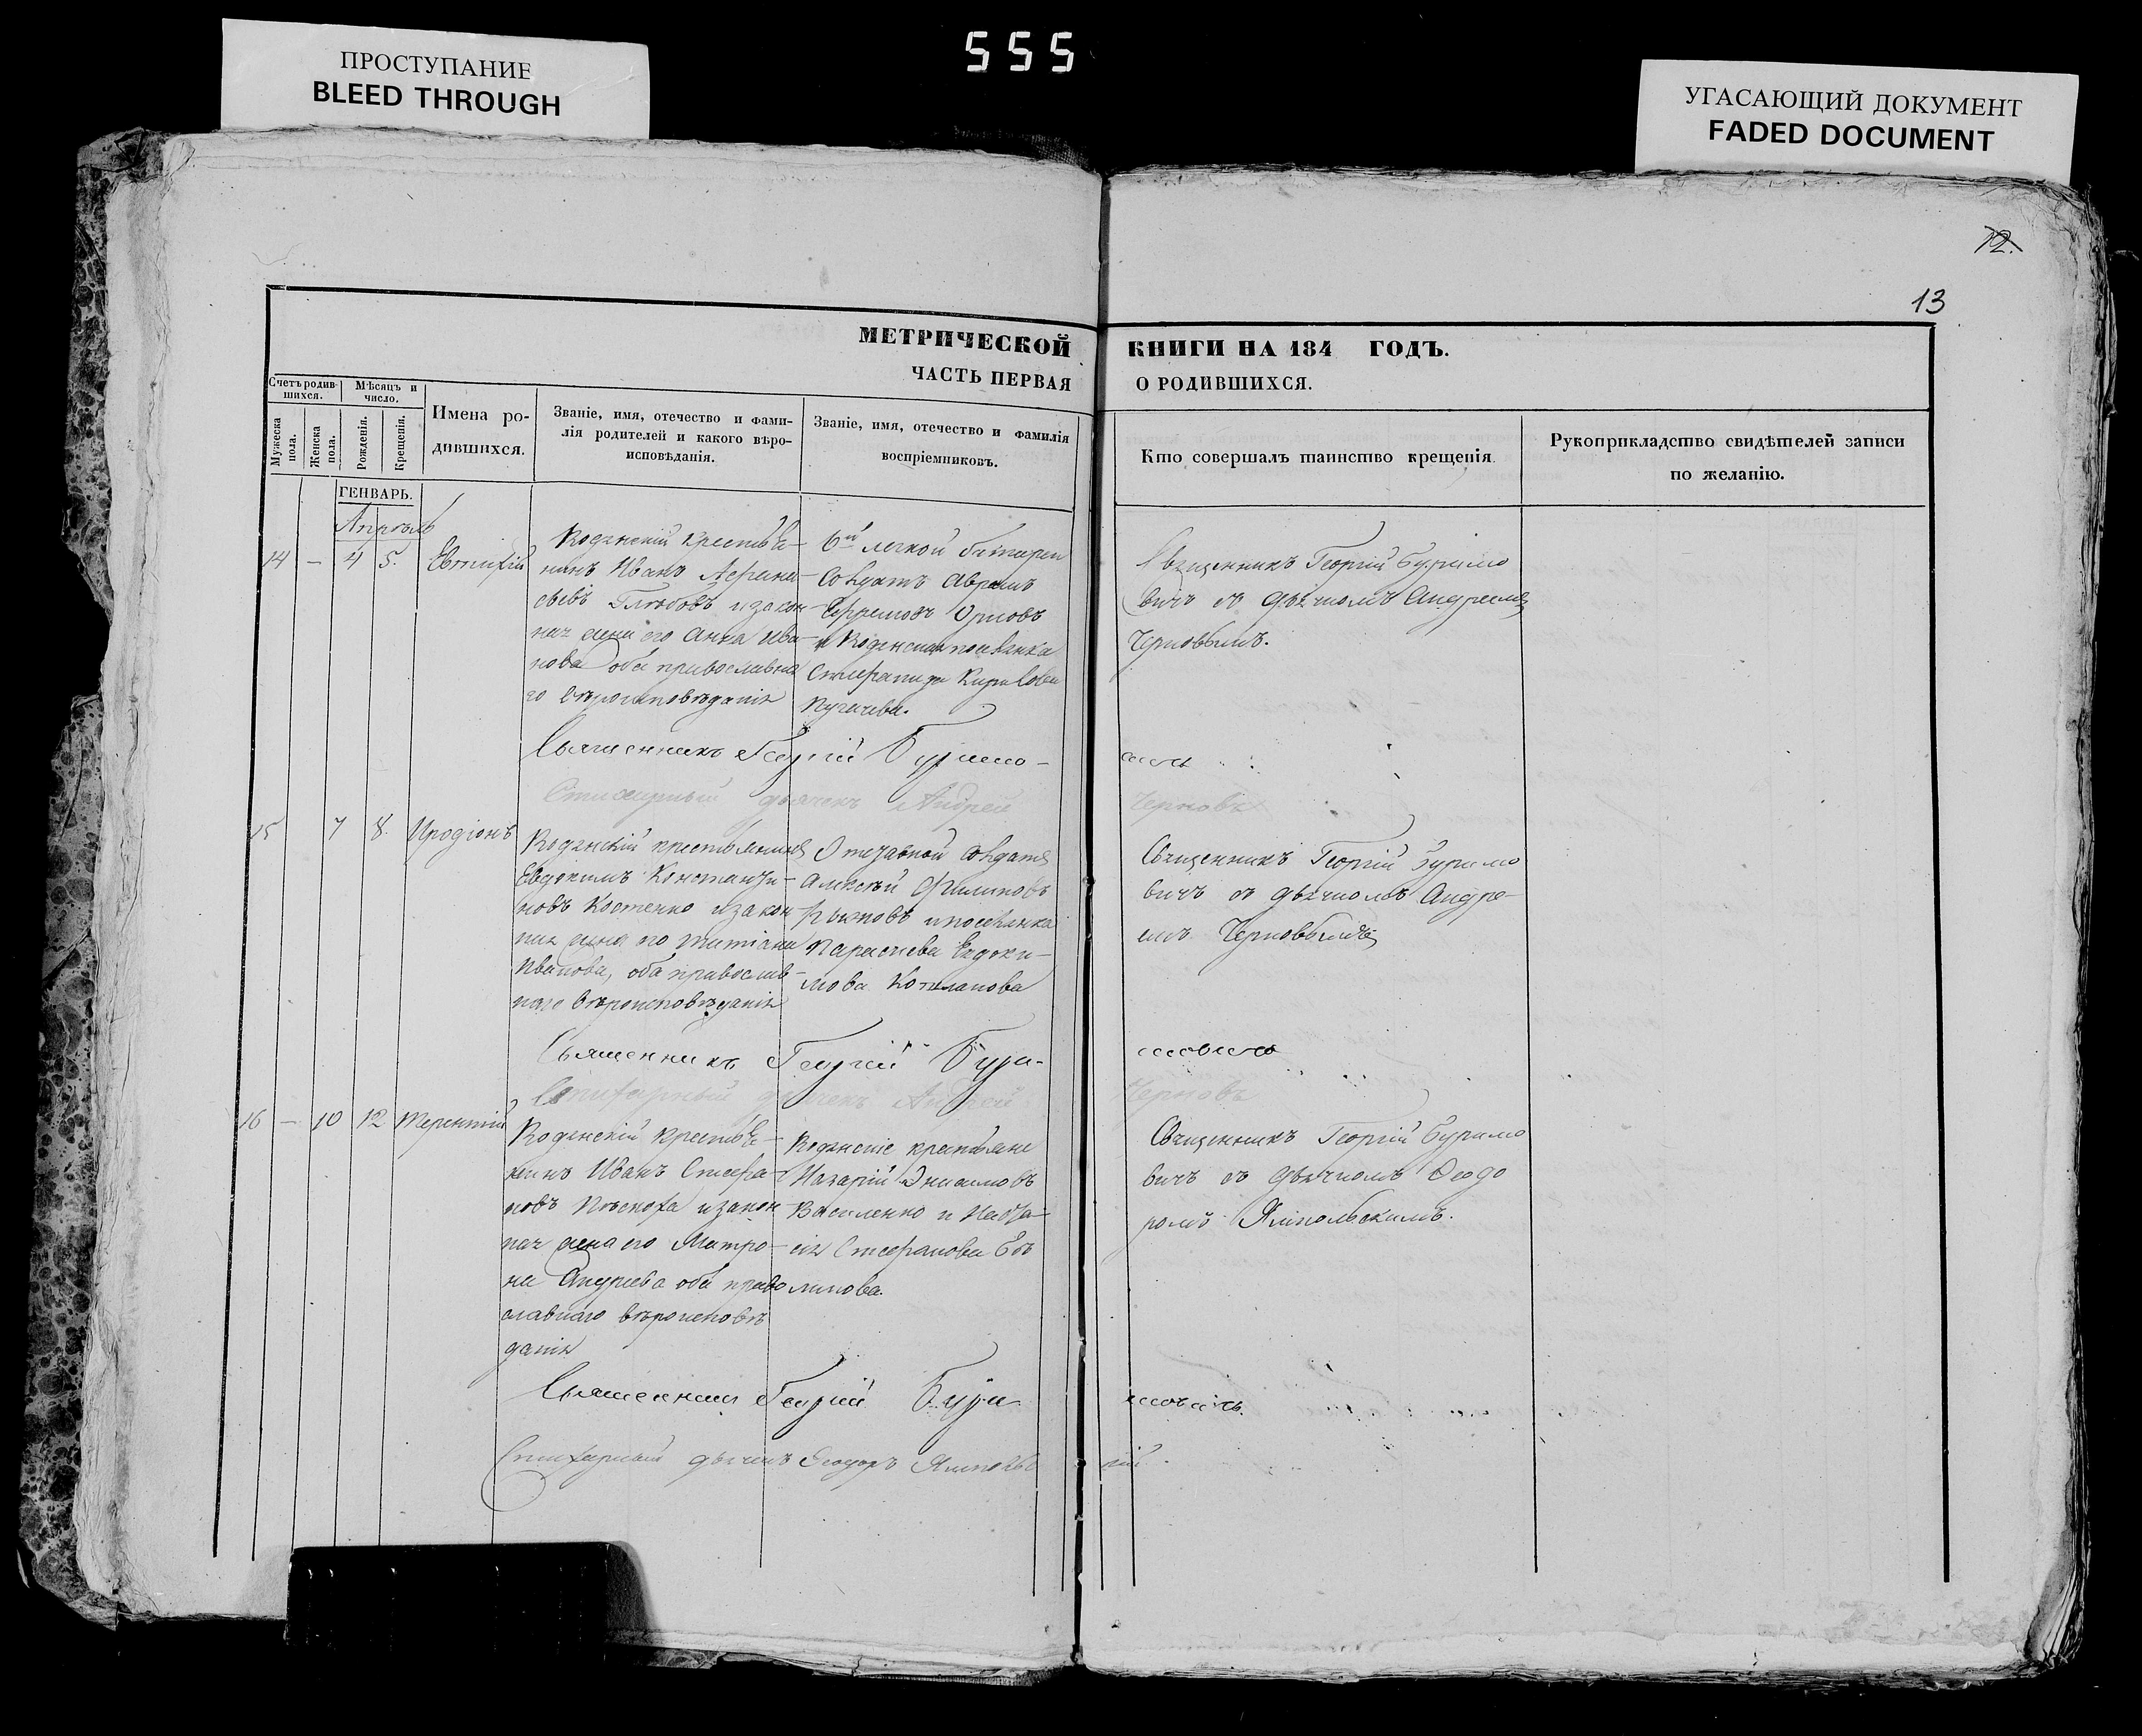 ПРОСТУПАНИЕ
BLEED THROUGH
555
УГАСАЮЩИЙ ДОКУМЕНТ
FADED DOCUMENT
12.
13
МЕТРИЧЕСКОЙ КНИГИ НА 184 ГОДЪ.
ЧАСТЬ ПЕРВАЯ О РОДИВШИХСЯ.
Счетъ родив-
шихся.
Мѣсяцъ и
число.
Мужеска
пола.
Женска
пола.
Рожденія.
Крещенія.
Имена ро-
дившихся.
Званіе, имя, отечество и фами-
лія родителей и какого вѣро-
исповѣданія.
Званіе, имя, отечество и фамилія
воспріемниковъ.
Кто совершалъ таинство крещенія.
Рукоприкладство свидѣтелей записи
по желанію.
ГЕНВАРЬ.
Апрѣль
14 — 4 5. Евтихій
крестья-
нинъ Иванъ
Глѣбовъ и закон-
его Анна Ива-
нова оба православна
го вѣроисповѣданія
6й легкой батареи
солдатъ Аврамъ
Ефремовъ Орловъ
и поселянка
Кирилова
Пугачева.
Священникъ Георгій Буримо
вичъ съ дьячкомъ Андреемъ
Черновымъ.
Священникъ Георгій Буримо-
вичъ
дьячекъ Андрей
Черновъ
15 7 8. Иродіонъ
крестьянинъ
Евдокимъ Константи-
новъ Костенко и закон-
его Татіана
Иванова, оба православ-
наго вѣроисповѣданія
Отставной солдатъ
Алексѣй Филиповъ
Рыжовъ и поселянка
Параскева Евдоки-
мова
Священникъ Георгій Буримо
вичъ съ дьячкомъ Андре-
емъ Черновымъ
Священникъ Георгій Бури-
мовичъ
дьячекъ Андрей
Черновъ
16 — 10 12 Терентій
крестья-
нинъ Иванъ Стефа-
новъ и закон-
его Матро-
на Андреева оба право
славнаго вѣроисповѣ
данія
крестьяне
Назарій Онисимовъ
Василенко и
Стефанова
Священникъ Георгій Буримо
вичъ съ дьячкомъ Ѳеодо
ромъ Ямпольскимъ.
Священникъ Георгій Бури
мовичъ.
дьячекъ Ѳеодоръ Ямпольс
кій